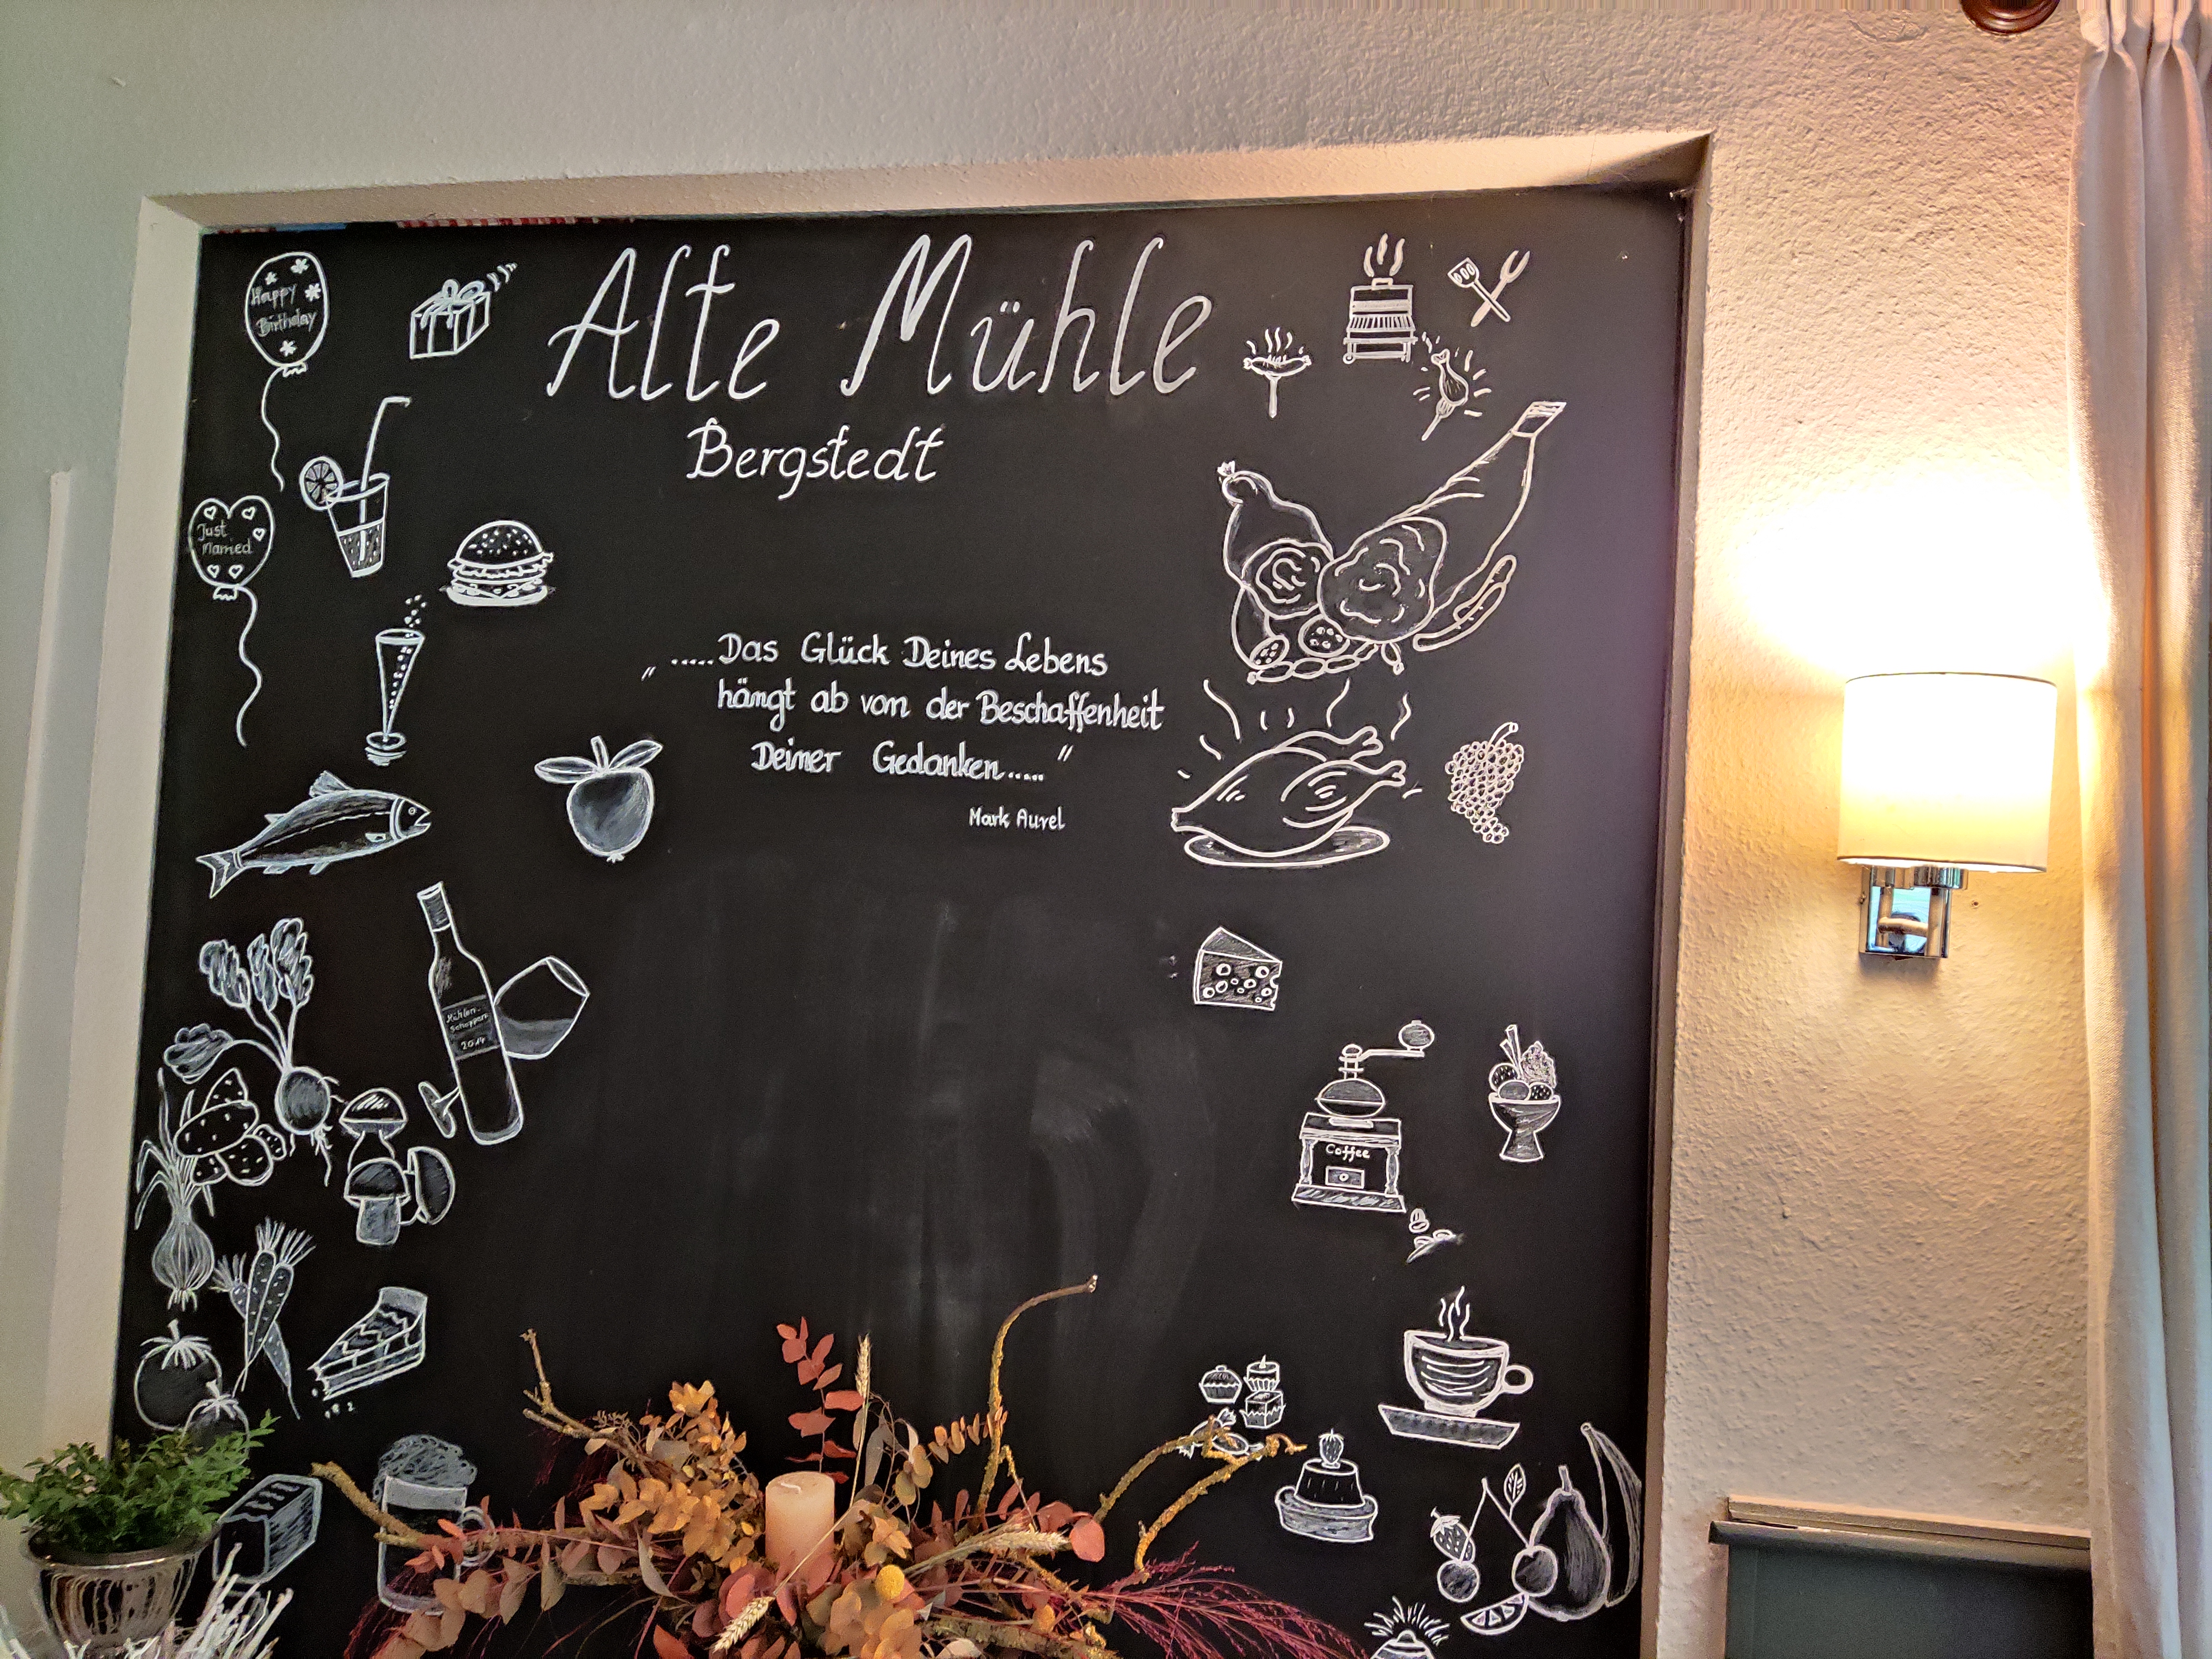 Alte Mühle
Bergstedt
Happy
Birthday
Just
Married
„.....Das Glück Deines Lebens
hängt ab von der Beschaffenheit
Deiner Gedanken....."
Mark Aurel
Mühlen-
Schoppen
2014
Coffee